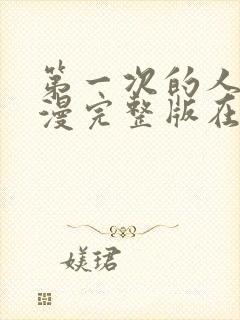 第一次的人
漫完整版在
媄珺